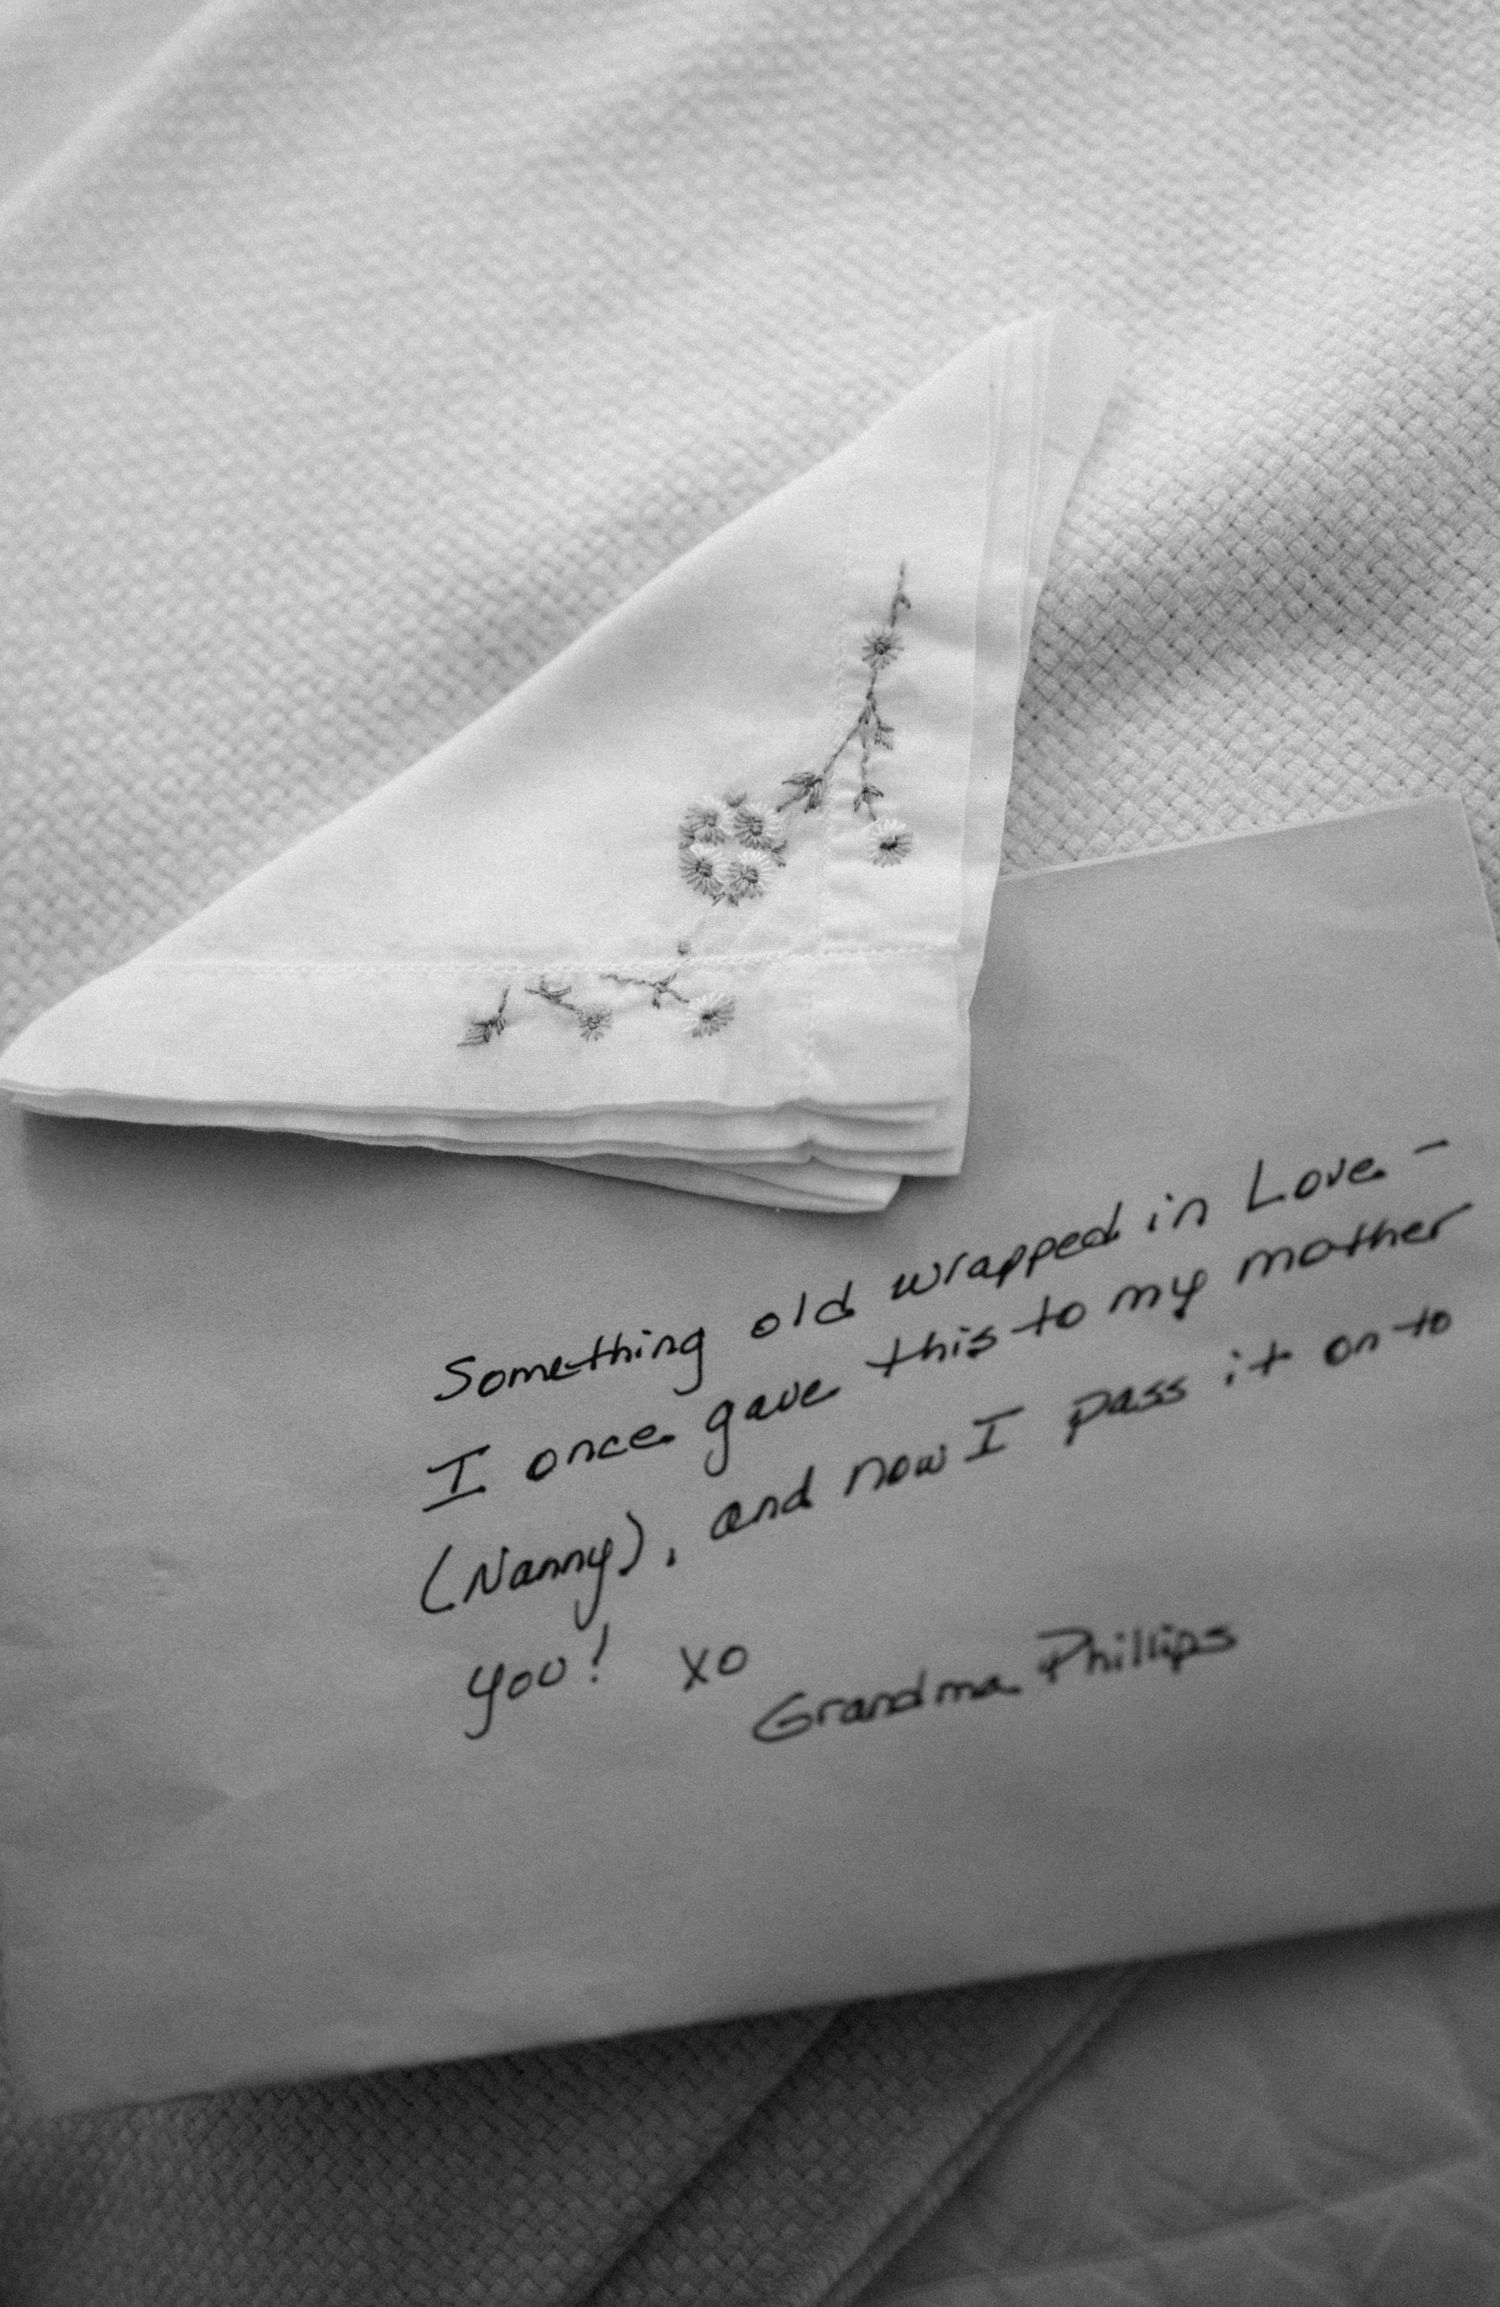 Something old wrapped in Love -
I once gave this to my mother
(Nanny), and now I pass it on to
you! xo
Grandma Phillips